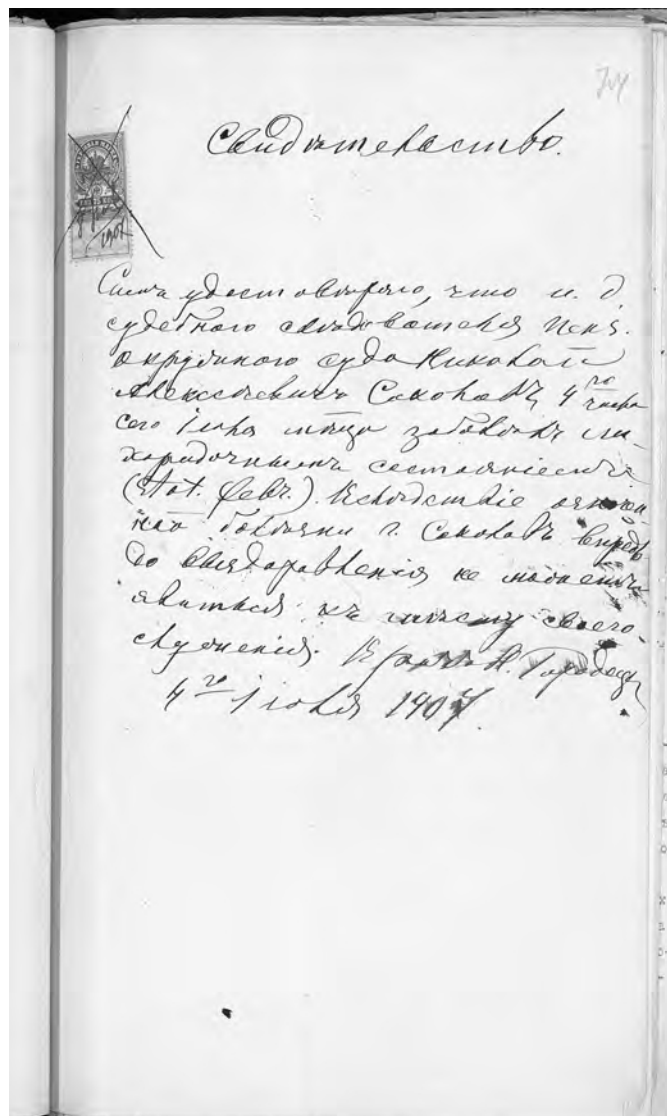 74
Свидѣтельство.
1907
Симъ удостовѣряю, что и. д.
судебнаго слѣдователя Пенз.
окружнаго суда Николай
Алексѣевичъ Соколовъ 4го числа
сего Iюля мѣсца заболѣлъ ли-
хорадочнымъ состоянiемъ
(Stat. febr.). Вслѣдствiе означен-
ной болѣзни г. Соколовъ впредь
до выздоровленiя не можетъ
явиться къ мѣсту своего
служенiя. Врачъ Н.
4го Iюля 1907.